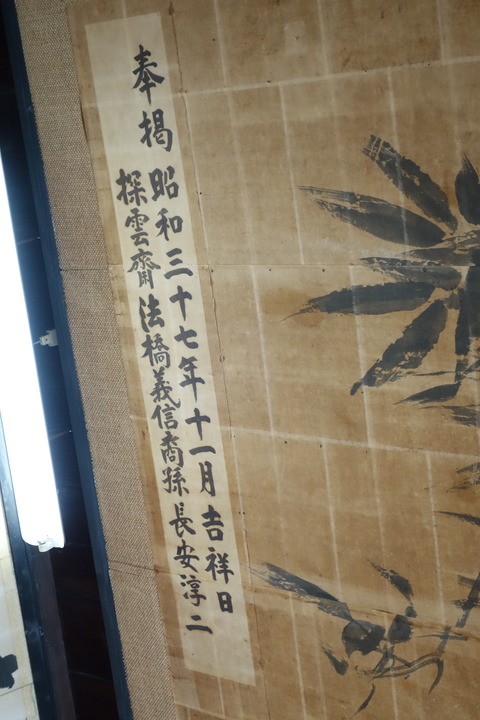 奉掲
昭和三十七年十一月吉祥日
探雲齋法橋義信裔孫長安淳二